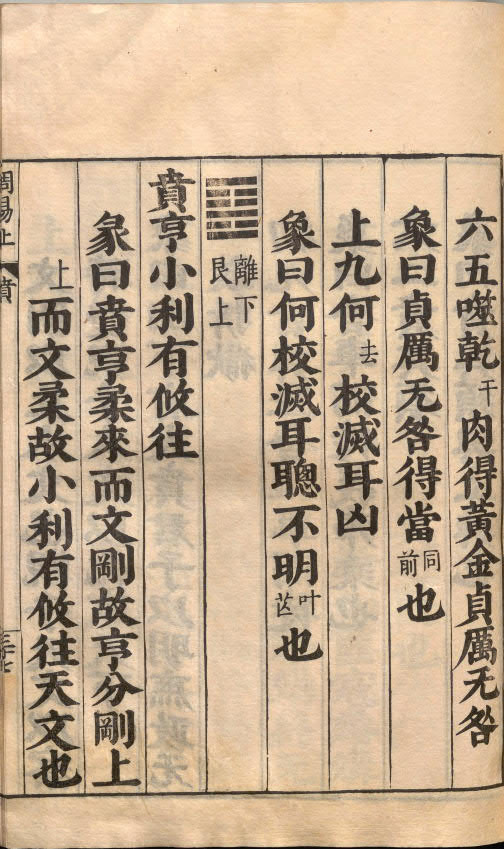 六五噬乾干肉得黃金貞厲无咎
象曰貞厲无咎得當同前也
上九何去校滅耳凶
象曰何校滅耳聰不明叶芒也
離下艮上
賁亨小利有攸往
彖曰賁亨柔來而文剛故亨分剛上
上而文柔故小利有攸往天文也
周易上 賁